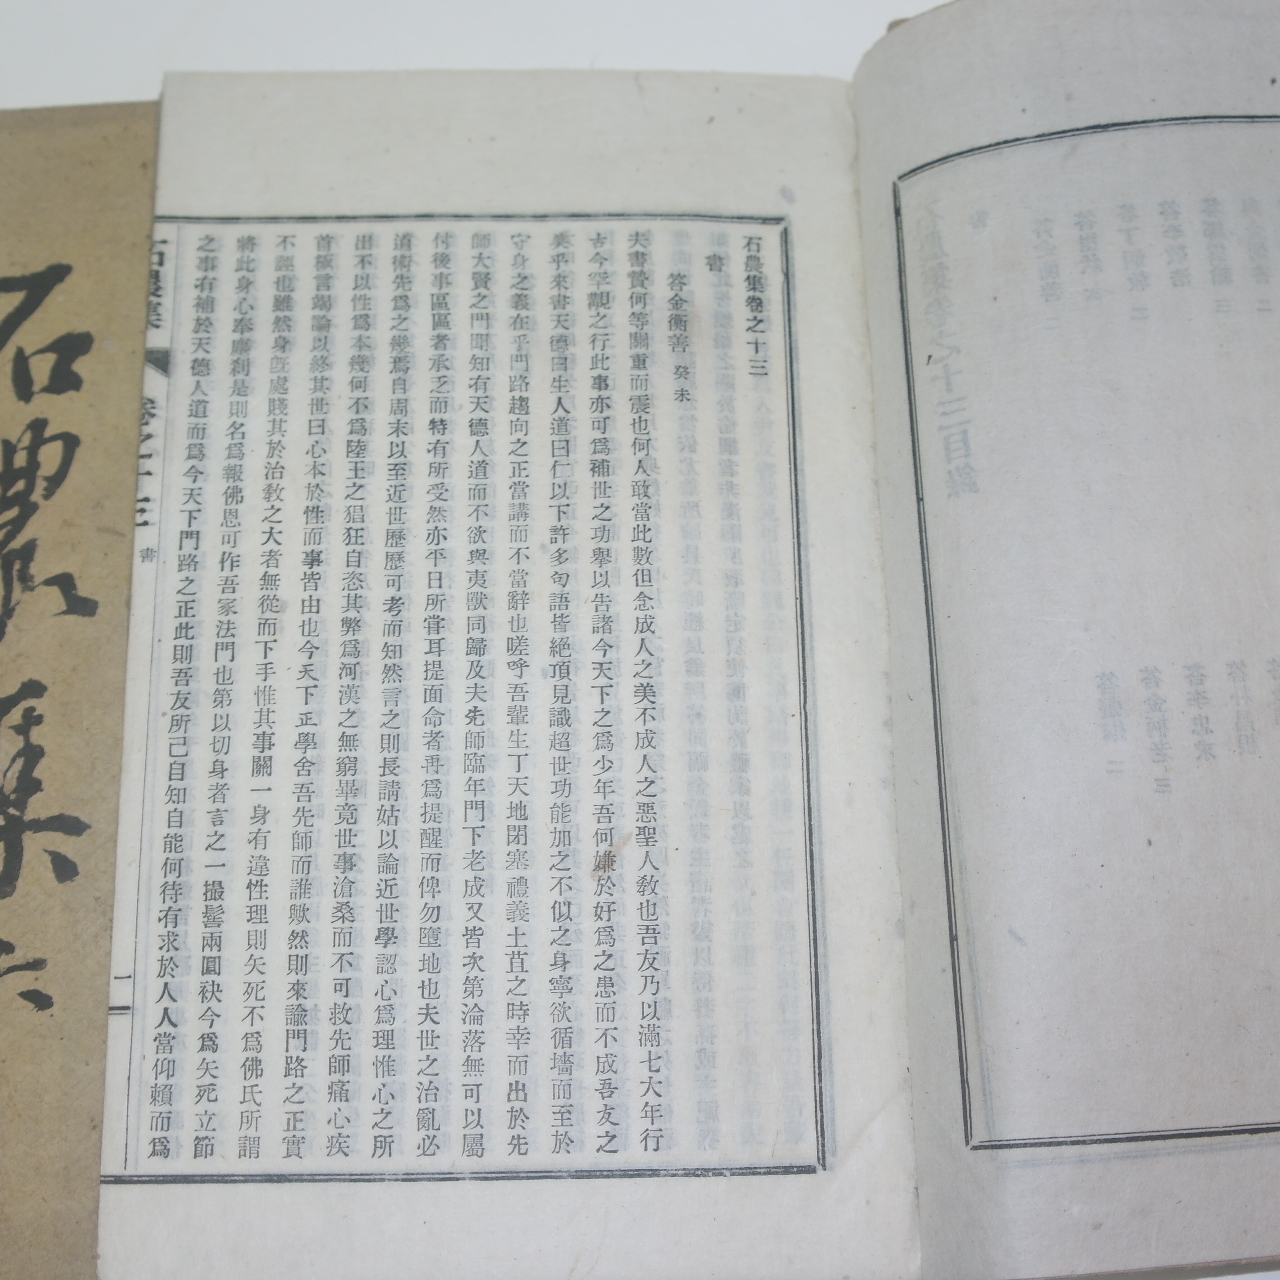 石農集卷之十三
書
答金衡善 癸未
夫書贄何等關重而震也何人敢當此數但念成人之美不成人之惡聖人教也吾友乃以滿七大年行
古今罕覯之行此事亦可爲補世之功舉以告諸今天下之爲少年吾何嫌於好爲之患而不成吾友之
美乎來書天德曰生人道曰仁以下許多句語皆絕頂見識超世功能加之不似之身寧欲循墻而至於
守身之義在乎門路趨向之正當講而不當辭也嗟呼吾輩生丁天地閉塞禮義土苴之時幸而出於先
師大賢之門聞知有天德人道而不欲與夷獸同歸及夫先師臨年門下老成又皆次第淪落無可以屬
付後事區區者承乏而特有所受然亦平日所甞耳提面命者再爲提醒而俾勿墮地也夫世之治亂必
道術先爲之幾焉自周末以至近世歷歷可考而知然言之則長請姑以論近世學認心爲理惟心之所
出不以性爲本幾何不爲陸王之猖狂自恣其弊爲河漢之無窮畢竟世事滄桑而不可救先師痛心疾
首極言竭論以終其世曰心本於性而事皆由也今天下正學舍吾先師而誰歟然則來諭門路之正實
不誣也雖然身旣處賤其於治教之大者無從而下手惟其事關一身有違性理則矢死不爲佛氏所謂
將此身心奉塵刹是則名爲報佛恩可作吾家法門也第以切身者言之一撮髻兩圓袂今爲矢死立節
之事有補於天德人道而爲今天下門路之正此則吾友所己自知自能何待有求於人人當仰賴而爲
石農集 卷之十三 書 一
石農集